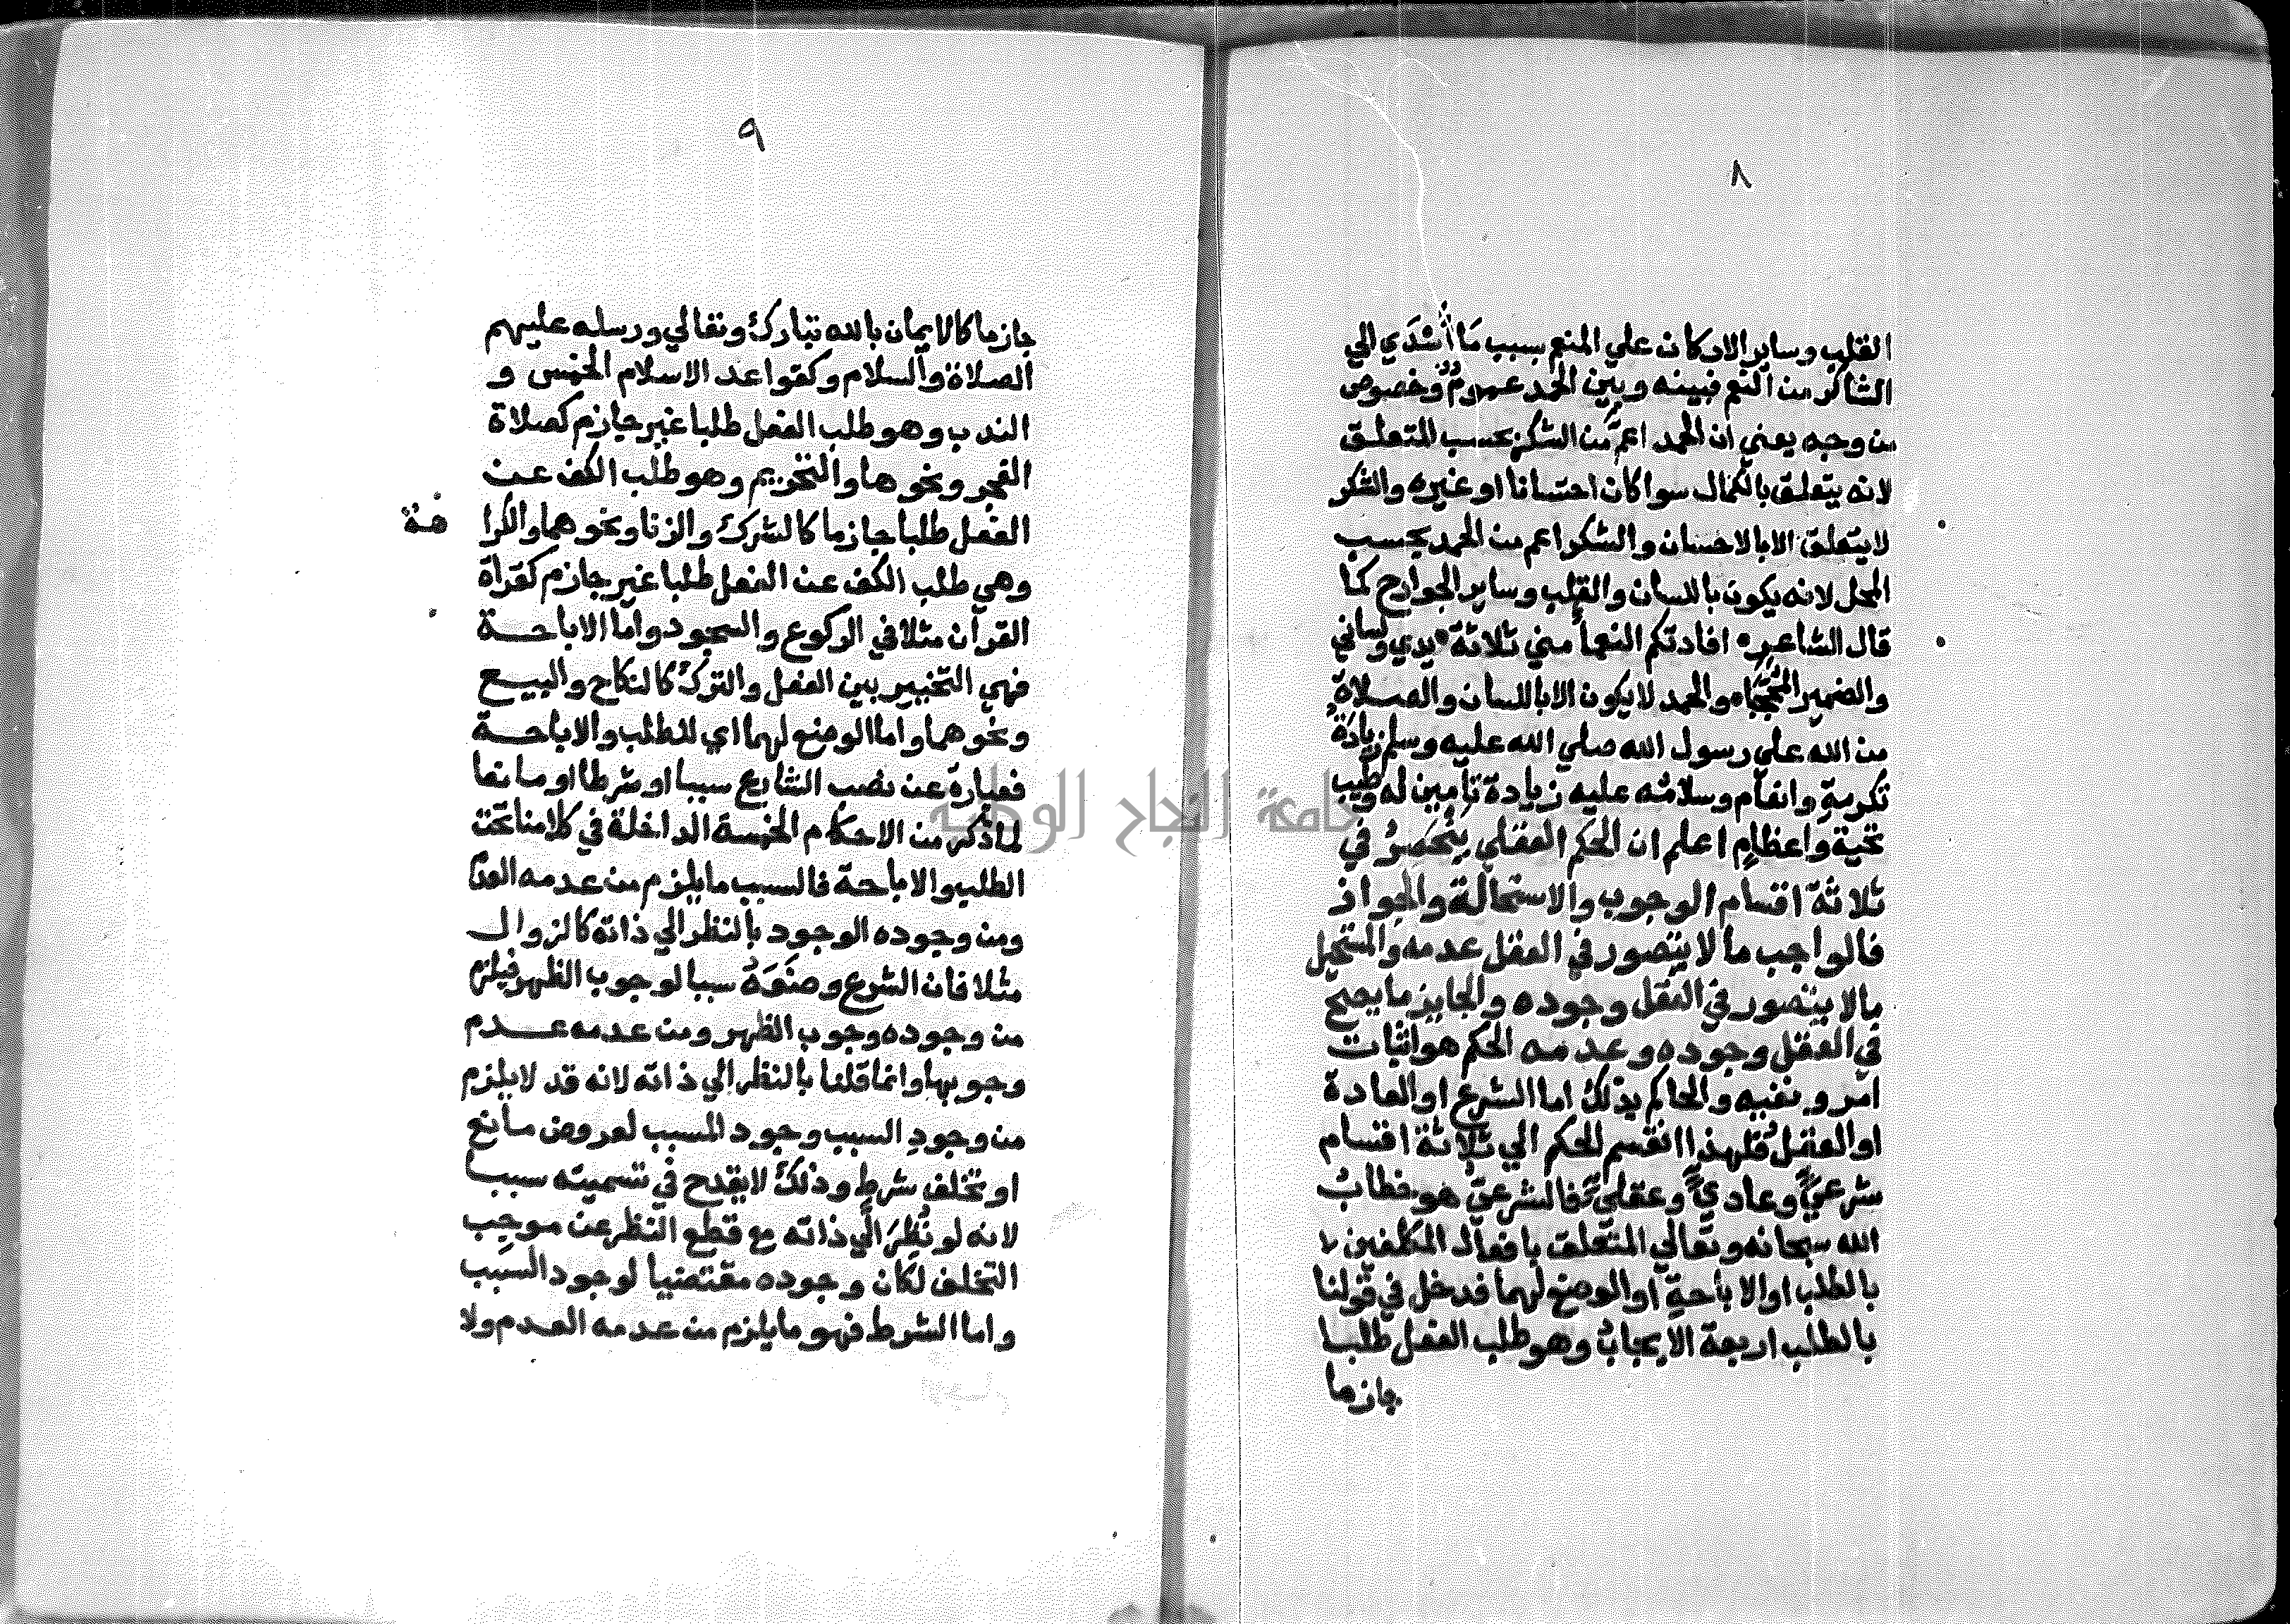 ٨
القلب وساير الاركان علي المنعم بسبب مَا أَسْدَي الي
الشاكر من النعم فبينه وبين الحمد عمومٌ وخصوص
من وجه يعني ان الحمد اعمّ من الشكر بحسب المتعلق
لانه يتعلق بالكمال سوا كان احسانا او غيره والشكر
لا يتعلق الا بالاحسان والشكر اعم من الحمد بحسب
المحل لانه يكون باللسان والقلب وساير الجوارح كما
قال الشاعر افادتكم النعمأ مني ثلاثة يدي ولساني
والضمير المُحَجَّبَا والحمد لا يكون الا باللسان والصلاة
من الله علي رسول الله صلي الله عليه وسلم زيادَةُ
تكرمةٍ وانعام وسلامُه عليه زيادة تأمين له وطيب
تحية واعظامٍ اعلم ان الحكم العقلي يَنْحَصِرُ في
ثلاثة اقسام الوجوب والاستحالة والجواز
فالواجب ما لا يتصور في العقل عدمه والمستحيل
مالا يتصور في العقل وجوده والجايز ما يصح
في العقل وجوده وعدمه الحكم هو اثبات
امر ونفيه والحاكم بذلك اما الشرع او العادة
او العقل فلهذا انقسم الحكم الي ثلاثة اقسام
شرعيٍّ وعاديٍّ وعقليٍّ فالشرعيّ هو خطابُ
الله سبحانه وتعالي المتعلق بافعال المكلفين
بالطلب او الاباحةِ او الوضع لهما فدخل في قولنا
بالطلب اربعة الايجابُ وهو طلب الفعل طلبا
جازما
٩
جازما كالايمان بالله تبارك وتعالي ورسله عليهم
الصلاة والسلام وكقواعد الاسلام الخمس و
الندب وهو طلب الفعل طلبا غير جازم كصلاة
الفجر ونحوها والتحريم وهو طلب الكف عن
الفعل طلبا جازما كالشرك والزنا ونحوهما والكرا هة
وهي طلب الكف عن الفعل طلبا غير جازم كقراة
القرأن مثلا في الركوع والسجود واما الاباحة
فهي التخيير بين الفعل والترك كالنكاح والبيع
ونحوهما واما الوضع لهما اي للطلب والاباحة
فعبارة عن نصب الشارع سببا او شرطا او مانعا
لما ذكر من الاحكام الخمسة الداخلة في كلامنا تحت
الطلب والاباحة فالسبب ما يلزم من عدمه العدم
ومن وجوده الوجود بالنظر الي ذاته كالزوال
مثلا فان الشرع وضَعَهُ سببا لوجوب الظهر فيلزم
من وجوده وجوب الظهر ومن عدمه عدم
وجوبها وانما قلنا بالنظر الي ذاته لانه قد لا يلزم
من وجودِ السببِ وجود المسبب لعروض مانع
او تخلف شرطٍ وذلك لا يقدح في تسميته سببا
لانه لو نُظِرَ الي ذاته مع قطع النظر عن موجب
التخلف لكان وجوده مقتضيا لوجود السبب
واما الشرط فهو ما يلزم من عدمه العدم ولا
جامعة النجاح الوطنية